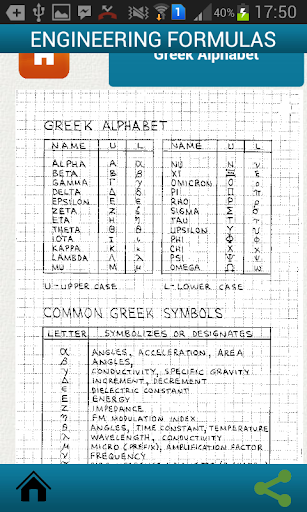 17:50
ENGINEERING FORMULAS
Greek Alphabet
GREEK ALPHABET
NAME U L NAME U L
ALPHA Α α NU Ν ν
BETA Β β XI Ξ ξ
GAMMA Γ γ OMICRON Ο ο
DELTA Δ δ PI Π π
EPSILON Ε ε RHO Ρ ρ
ZETA Ζ ζ SIGMA Σ σ
ETA Η η TAU Τ τ
THETA Θ θ UPSILON Υ υ
IOTA Ι ι PHI Φ φ
KAPPA Κ κ CHI Χ χ
LAMBDA Λ λ PSI Ψ ψ
MU Μ μ OMEGA Ω ω
U-UPPER CASE L-LOWER CASE
COMMON GREEK SYMBOLS
LETTER SYMBOLIZES OR DESIGNATES
α ANGLES, ACCELERATION, AREA
β ANGLES,
γ CONDUCTIVITY, SPECIFIC GRAVITY
Δ INCREMENT, DECREMENT
ε DIELECTRIC CONSTANT
E ENERGY
Z IMPEDANCE
η FM MODULATION INDEX
θ ANGLES, TIME CONSTANT, TEMPERATURE
λ WAVELENGTH, CONDUCTIVITY
μ MICRO (PREFIX), AMPLIFICATION FACTOR
ν FREQUENCY